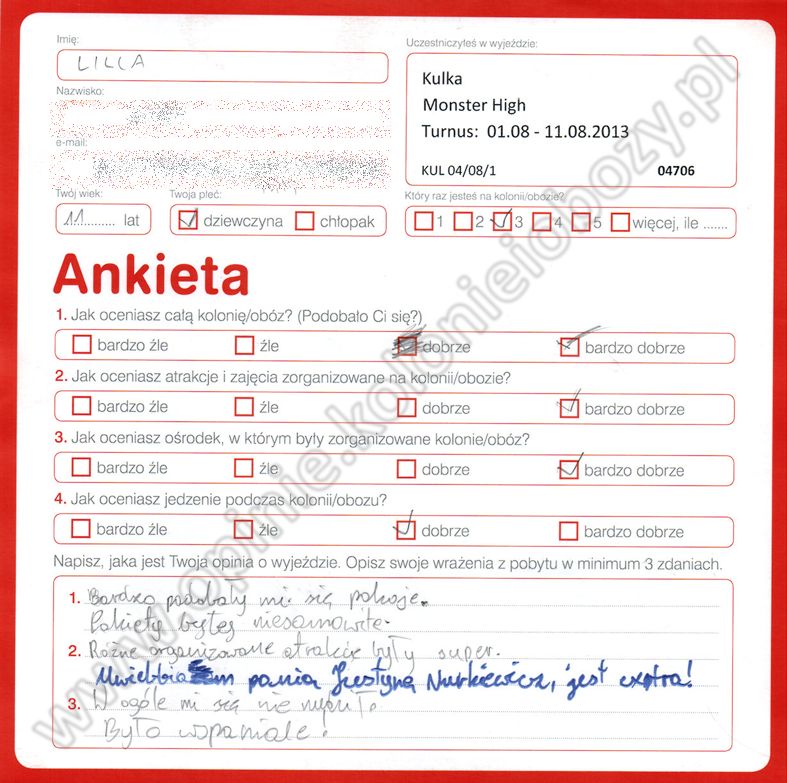 Imię:
LILLA
Uczestniczyłeś w wyjeździe:
Kulka
Monster High
Turnus: 01.08 - 11.08.2013
KUL 04/08/1 04706
Nazwisko:
e-mail:
Twój wiek:
11 lat
Twoja płeć:
dziewczyna chłopak
Który raz jesteś na kolonii/obozie?
1 2 3 4 5 więcej, ile .......
Ankieta
1. Jak oceniasz całą kolonię/obóz? (Podobało Ci się?)
bardzo źle źle dobrze bardzo dobrze
2. Jak oceniasz atrakcje i zajęcia zorganizowane na kolonii/obozie?
bardzo źle źle dobrze bardzo dobrze
3. Jak oceniasz ośrodek, w którym były zorganizowane kolonie/obóz?
bardzo źle źle dobrze bardzo dobrze
4. Jak oceniasz jedzenie podczas kolonii/obozu?
bardzo źle źle dobrze bardzo dobrze
Napisz, jaka jest Twoja opinia o wyjeździe. Opisz swoje wrażenia z pobytu w minimum 3 zdaniach.
1. Bardzo podobały mi się pokoje.
niesamowite.
2. Różne organizowane atrakcje były super.
panią Justyną Nurkiewicz, jest extra!
3. W ogóle mi się nie
Było wspaniale!
www.opinie.kolonieiobozy.pl